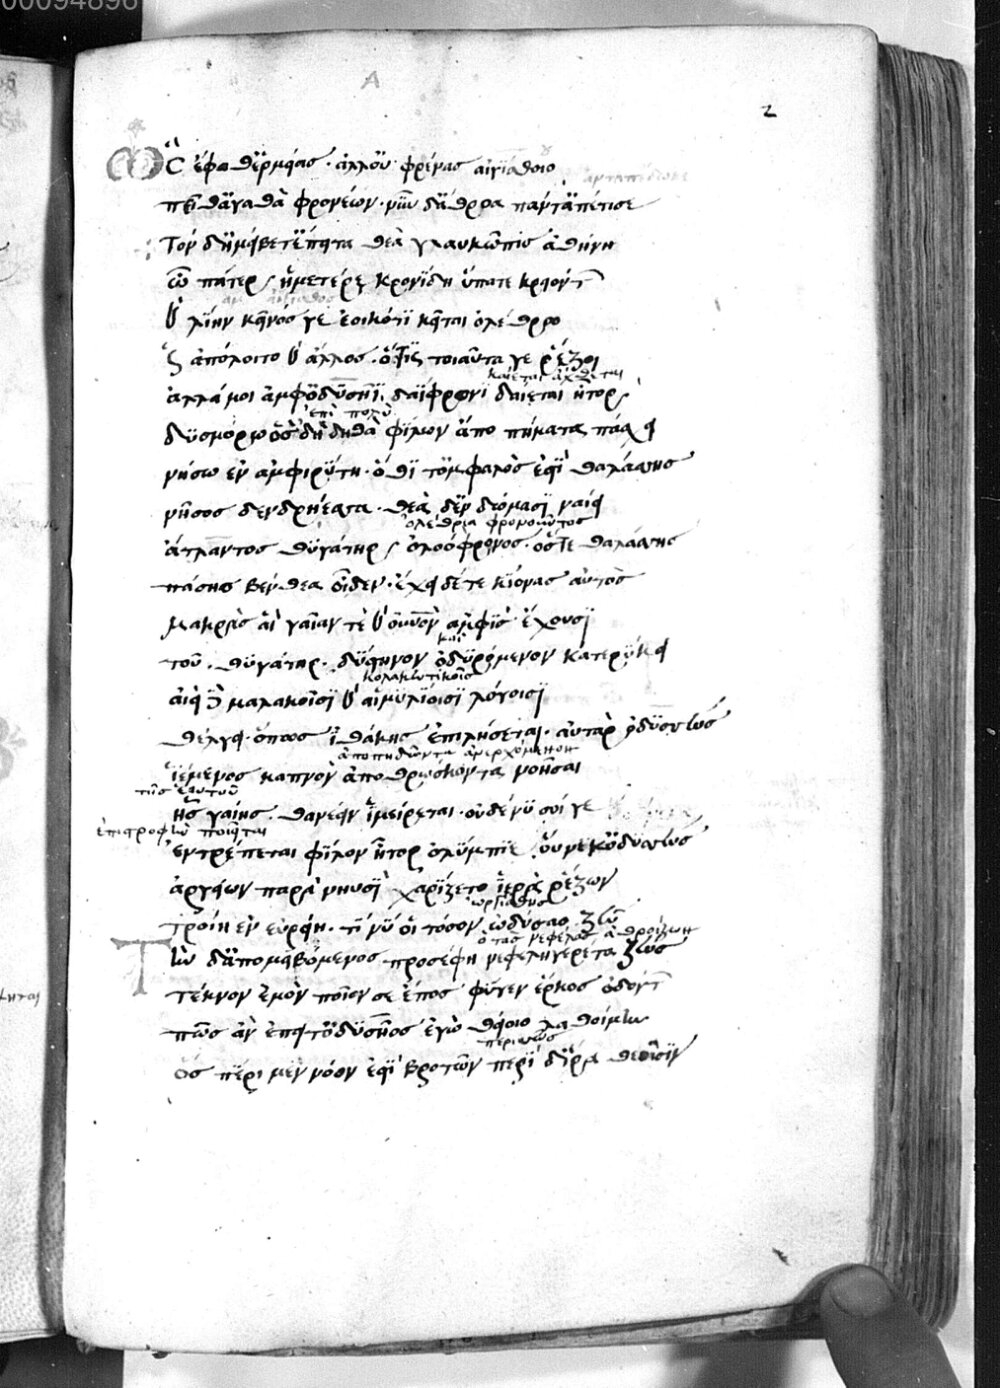 00094896
Α
2
Ὣς ἔφαθ' ἑρμείας· ἀλλ' οὐ φρένας αἰγίσθοιο
πεῖθ' ἀγαθὰ φρονέων· νῦν δ' ἀθρόα πάντ' ἀπέτισε
Τὸν δ' ἠμείβετ' ἔπειτα θεὰ γλαυκῶπις ἀθήνη
ὦ πάτερ ἡμέτερε κρονίδη ὕπατε κρειόντ
καὶ λίην κεῖνός γε ἐοικότι κεῖται ὀλέθρω
ὡς ἀπόλοιτο καὶ ἄλλος· ὅτις τοιαῦτά γε ῥέζοι
καίεται ἄχθεται
ἀλλά μοι ἀμφ' ὀδυσῆϊ δαΐφρονι δαίεται ἦτορ
ἐπὶ πολὺ
δυσμόρω ὃς δὴ δηθὰ φίλων ἄπο πήματα πάσχει
νήσω ἐν ἀμφιρύτη· ὅθι τ' ὀμφαλός ἐστι θαλάσσης
νῆσος δενδρήεσσα· θεὰ δ' ἐν δώμασι ναίει
ὀλέθρια φρονοῦντος
ἄτλαντος θυγάτηρ ὀλοόφρονος· ὅς τε θαλάσσης
πάσης βένθεα οἶδεν· ἔχει δέ τε κίονας αὐτὸς
μακρὰς αἳ γαῖάν τε καὶ οὐνὸν ἀμφὶς ἔχουσι
καὶ
τοῦ θυγάτηρ δύστηνον ὀδυρόμενον κατερύκει
κολακευτικοῖς
αἰεὶ δὲ μαλακοῖσι καὶ αἱμυλίοισι λόγοισι
θέλγει· ὅπως ἰθάκης ἐπιλήσεται· αὐτὰρ ὀδυσσεὺς
ἀποπηδῶντα ἀνερχόμενον
ἱέμενος καπνὸν ἀποθρώσκοντα νοῆσαι
τῆς ἑαυτοῦ
ἧς γαίης θανέειν ἱμείρεται· οὐδέ νύ σοί γε
ἐπιστροφὴν ποιεῖται
ἐντρέπεται φίλον ἦτορ ὀλύμπιε οὔ νύ τ' ὀδυσσεὺς
ἀργείων παρὰ νηυσὶ χαρίζετο ἱερὰ ῥέζων
ὠργίσθης
τροίη ἐν εὐρείη· τί νύ οἱ τόσον ὠδύσαο ζεῦ
ὁ τὰς νεφέλας ἀθροίζων
Τὴν δ' ἀπαμειβόμενος προσέφη νεφεληγερέτα ζεύς
τέκνον ἐμὸν ποῖόν σε ἔπος φύγεν ἕρκος ὀδόντ
πῶς ἂν ἔπειτ' ὀδυσῆος ἐγὼ θείοιο λαθοίμην
περισσῶς
ὃς πέρι μὲν νόον ἐστὶ βροτῶν περὶ δ' ἱρὰ θεοῖσιν